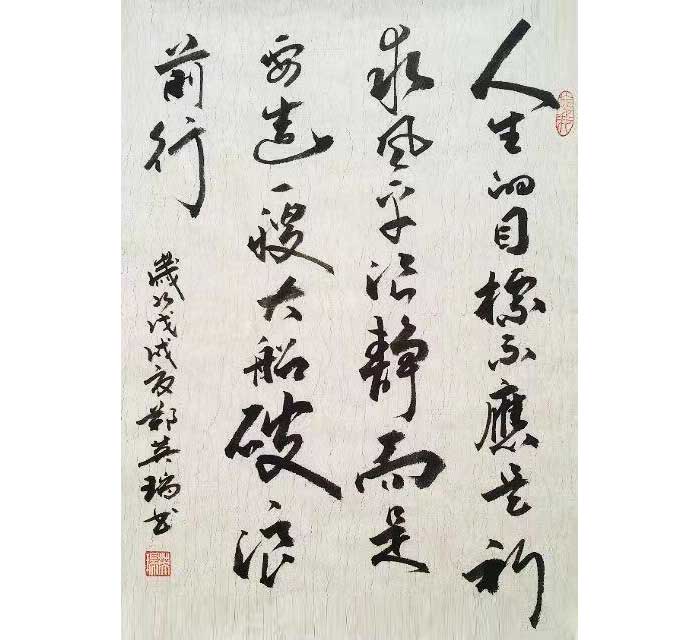 人生的目標不應是祈
求風平浪静而是
要造一艘大船破浪
前行
歲次戊戌夏鄭英瑞书